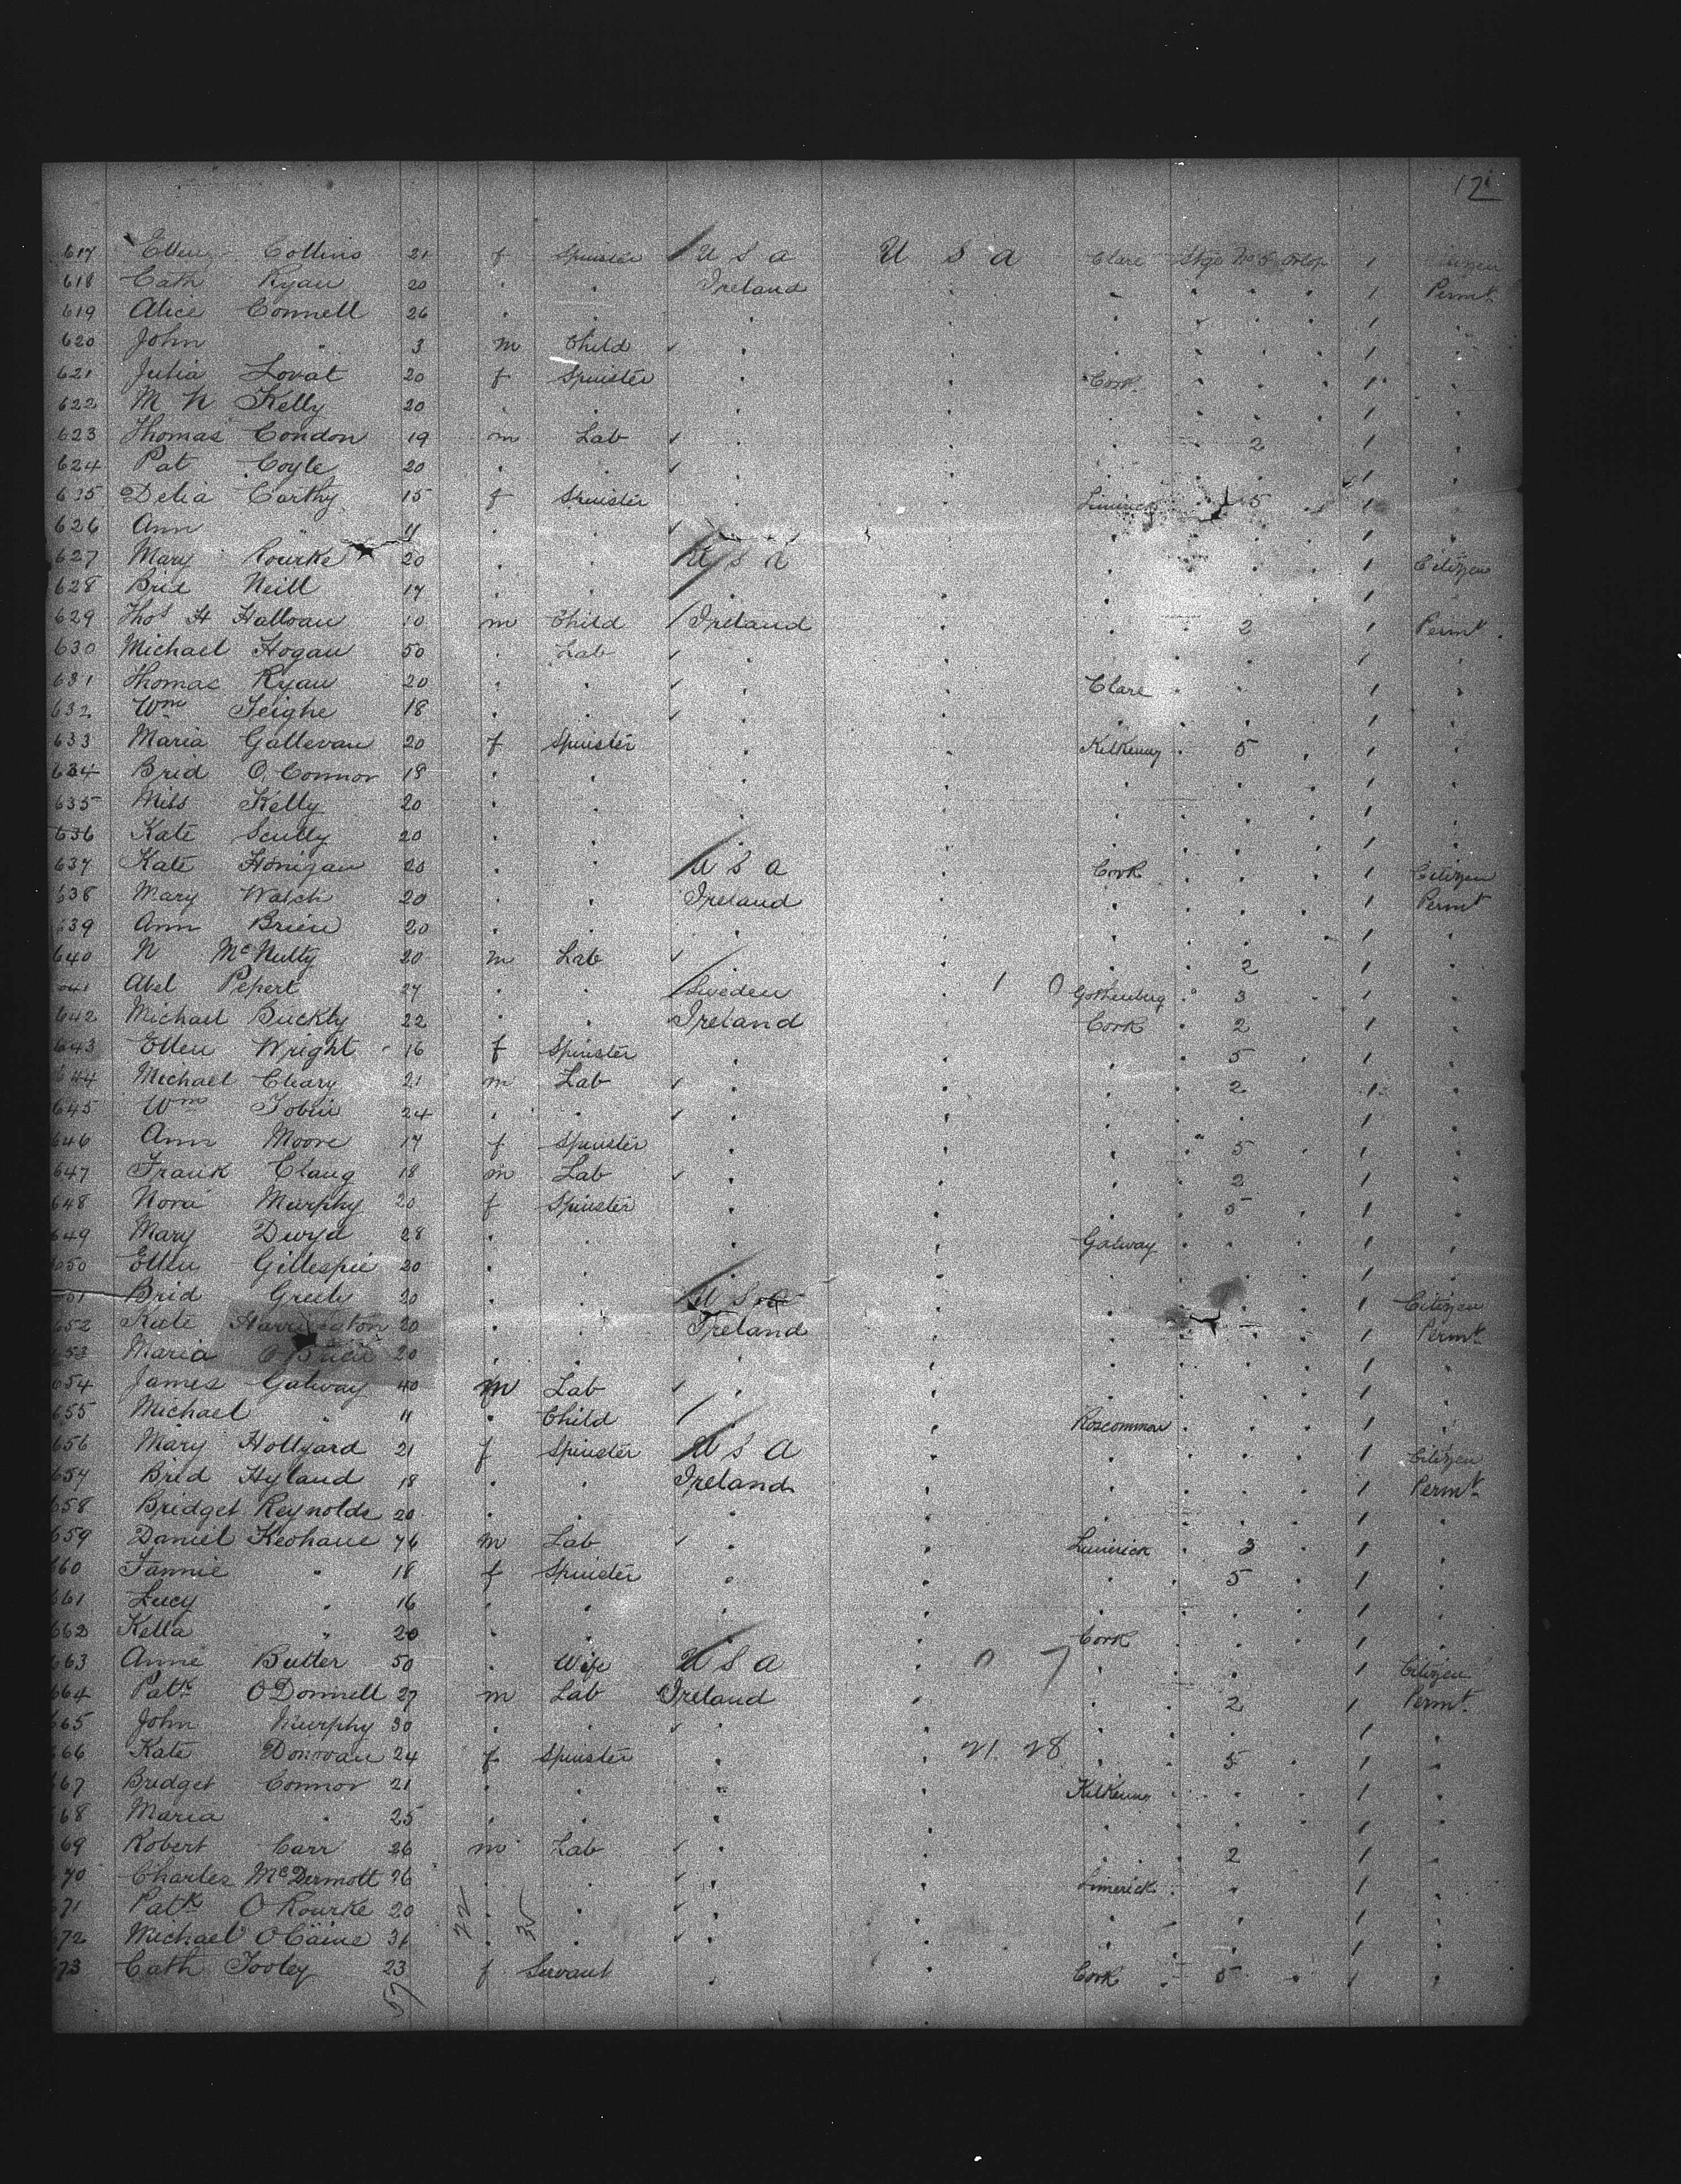 12
617 Ellen Collins 21 f Spinster U S a U S a Clare Stge No 5 Orlop 1
618 Cath Ryan 20 " " Ireland " " " " " 1 Permt
619 Alice Connell 26 " " " " " " " " 1 "
620 John " 3 m Child " " " " " " 1 "
621 Julia Lovat 20 f Spinster " " Cork " " " 1 "
622 M N Kelly 20 " " " " " " " " 1 "
623 Thomas Condon 19 m Lab " " " " 2 1 "
624 Pat Coyle 20 " " " " " " " " 1 "
635 Delia Carthy 15 f Spinster " " Limerick " 5 " 1 "
626 Ann " 11 " " " " " " " " 1 "
627 Mary Rourke 20 " " U S a " " " " " 1 Citizen
628 Brid Neill 17 " " " " " " " " 1 "
629 Thos H Halloran 10 m Child Ireland " " " 2 1 Permt
630 Michael Hogan 50 " Lab " " " " " " 1 "
631 Thomas Ryan 20 " " " " Clare " " 1 "
632 Wm Teighe 18 " " " " " " " " 1 "
633 Maria Gallevan 20 f Spinster " " Kilkenny " 5 " 1 "
634 Brid O. Connor 18 " " " " " " " " 1 "
635 Miss Kelly 20 " " " " " " " " 1 "
636 Kate Scully 20 " " " " " " " " 1 "
637 Kate Honigan 20 " " U S a " Cork " " " 1 Citizen
638 Mary Walsh 20 " " Ireland " " " " " 1 Permt
639 Ann Brien 20 " " " " " " " " 1 "
640 N McNulty 20 m Lab " " " " 2 1 "
641 Abel Pepert 27 " " Sweden " 1 0 Gothenburg " 3 " 1 "
642 Michael Buckly 22 " " Ireland " Cork " 2 1 "
643 Ellen Wright 16 f Spinster " " " " 5 " 1 "
644 Michael Cleary 21 m Lab " " " " 2 1 "
645 Wm Tobin 24 " " " " " " " 1 "
646 Ann Moore 17 f Spinster " " " " 5 " 1 "
647 Frank Clang 18 m Lab " " " " 2 1 "
648 Nora Murphy 20 f Spinster " " " " 5 " 1 "
649 Mary Dwyd 28 " " " " Galway " " " 1 "
650 Ellen Gillespie 20 " " " " " " " " 1 "
651 Brid Greely 20 " " U S a " " " " " 1 Citizen
652 Kate Harrington 20 " " Ireland " " " " " 1 Permt
653 Maria O'Brien 20 " " " " " " " " 1 "
654 James Galway 40 m Lab " " " " " " 1 "
655 Michael " 11 " Child " " Roscommon " " " 1 "
656 Mary Hollyard 21 f Spinster U S a " " " " " 1 Citizen
657 Brid Hyland 18 " " Ireland " " " " " 1 Permt
658 Bridget Reynolds 20 " " " " " " " " 1 "
659 Daniel Keohane 76 m Lab " " Limerick " 3 " 1 "
660 Fannie " 18 f Spinster " " " " 5 " 1 "
661 Lucy " 16 " " " " " " " " 1 "
662 Kella " 20 " " " " Cork " " " 1 "
663 Anne Butler 50 " Wife U S a " 0 7 " " " 1 Citizen
664 Patk O Donnell 27 m Lab Ireland " " " 2 1 Permt
665 John Murphy 30 " " " " " " " 1 "
666 Kate Donovan 24 f Spinster " 21 28 " " 5 " 1 "
667 Bridget Connor 21 " " " " Kilkenny " " " 1 "
668 Maria " 25 " " " " " " " " 1 "
669 Robert Carr 26 m Lab " " " " 2 1 "
670 Charles McDermott 26 " " " " Limerick " " 1 "
671 Patk O Rourke 20 " " " " " " " 1 "
672 Michael O Caine 31 " " " " " " " 1 "
673 Cath Tooley 23 f Servant " " Cork " 5 " 1 "
57
22